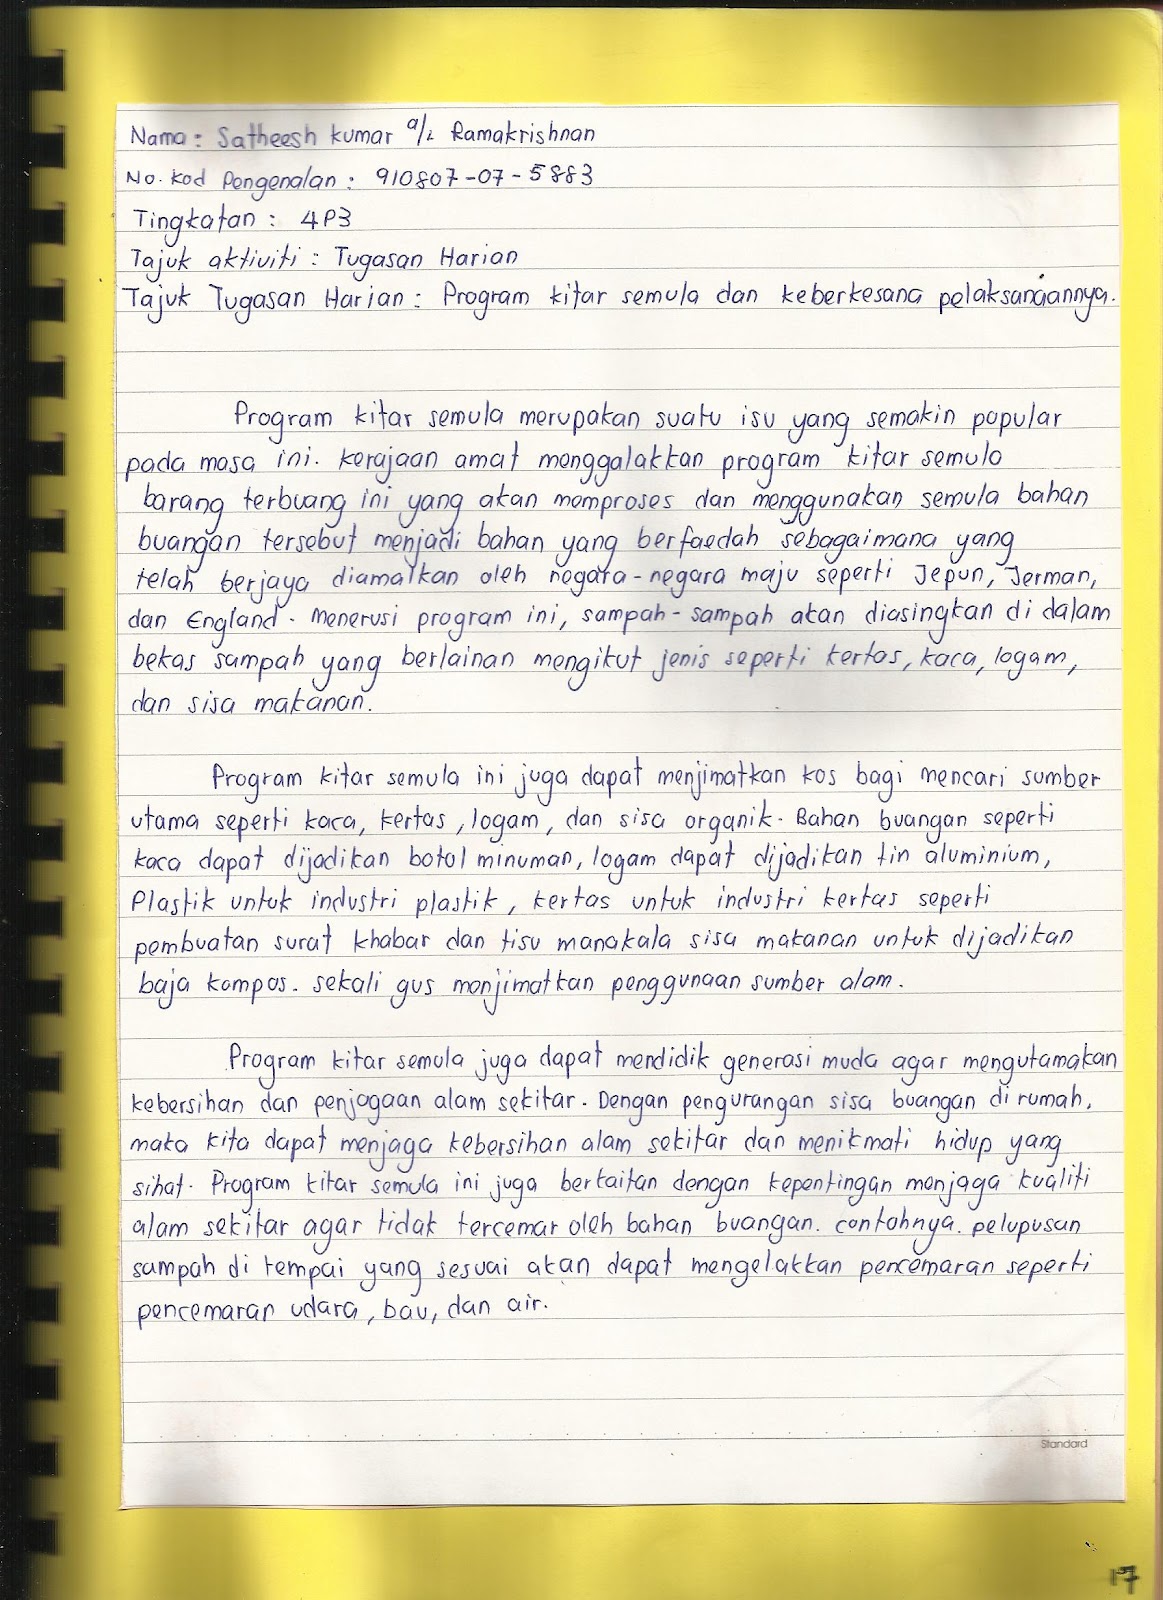 Nama : Satheesh kumar a/l Ramakrishnan
No. kod Pengenalan : 910807-07-5883
Tingkatan : 4P3
Tajuk aktiviti : Tugasan Harian
Tajuk Tugasan Harian : Program kitar semula dan keberkesana pelaksanaannya.
Program kitar semula merupakan suatu isu yang semakin popular
pada masa ini. kerajaan amat menggalakkan program kitar semula
barang terbuang ini yang akan memproses dan menggunakan semula bahan
buangan tersebut menjadi bahan yang berfaedah sebagaimana yang
telah berjaya diamalkan oleh negara-negara maju seperti Jepun, Jerman,
dan England. Menerusi program ini, sampah-sampah akan diasingkan di dalam
bekas sampah yang berlainan mengikut jenis seperti kertas, kaca, logam,
dan sisa makanan.
Program kitar semula ini juga dapat menjimatkan kos bagi mencari sumber
utama seperti kaca, kertas, logam, dan sisa organik. Bahan buangan seperti
kaca dapat dijadikan botol minuman, logam dapat dijadikan tin aluminium,
Plastik untuk industri plastik, kertas untuk industri kertas seperti
pembuatan surat khabar dan tisu manakala sisa makanan untuk dijadikan
baja kompos. sekali gus menjimatkan penggunaan sumber alam.
Program kitar semula juga dapat mendidik generasi muda agar mengutamakan
kebersihan dan penjagaan alam sekitar. Dengan pengurangan sisa buangan di rumah,
maka kita dapat menjaga kebersihan alam sekitar dan menikmati hidup yang
sihat. Program kitar semula ini juga berkaitan dengan kepentingan menjaga kualiti
alam sekitar agar tidak tercemar oleh bahan buangan. contohnya. pelupusan
sampah di tempai yang sesuai akan dapat mengelakkan pencemaran seperti
pencemaran udara, bau, dan air.
Standard
17